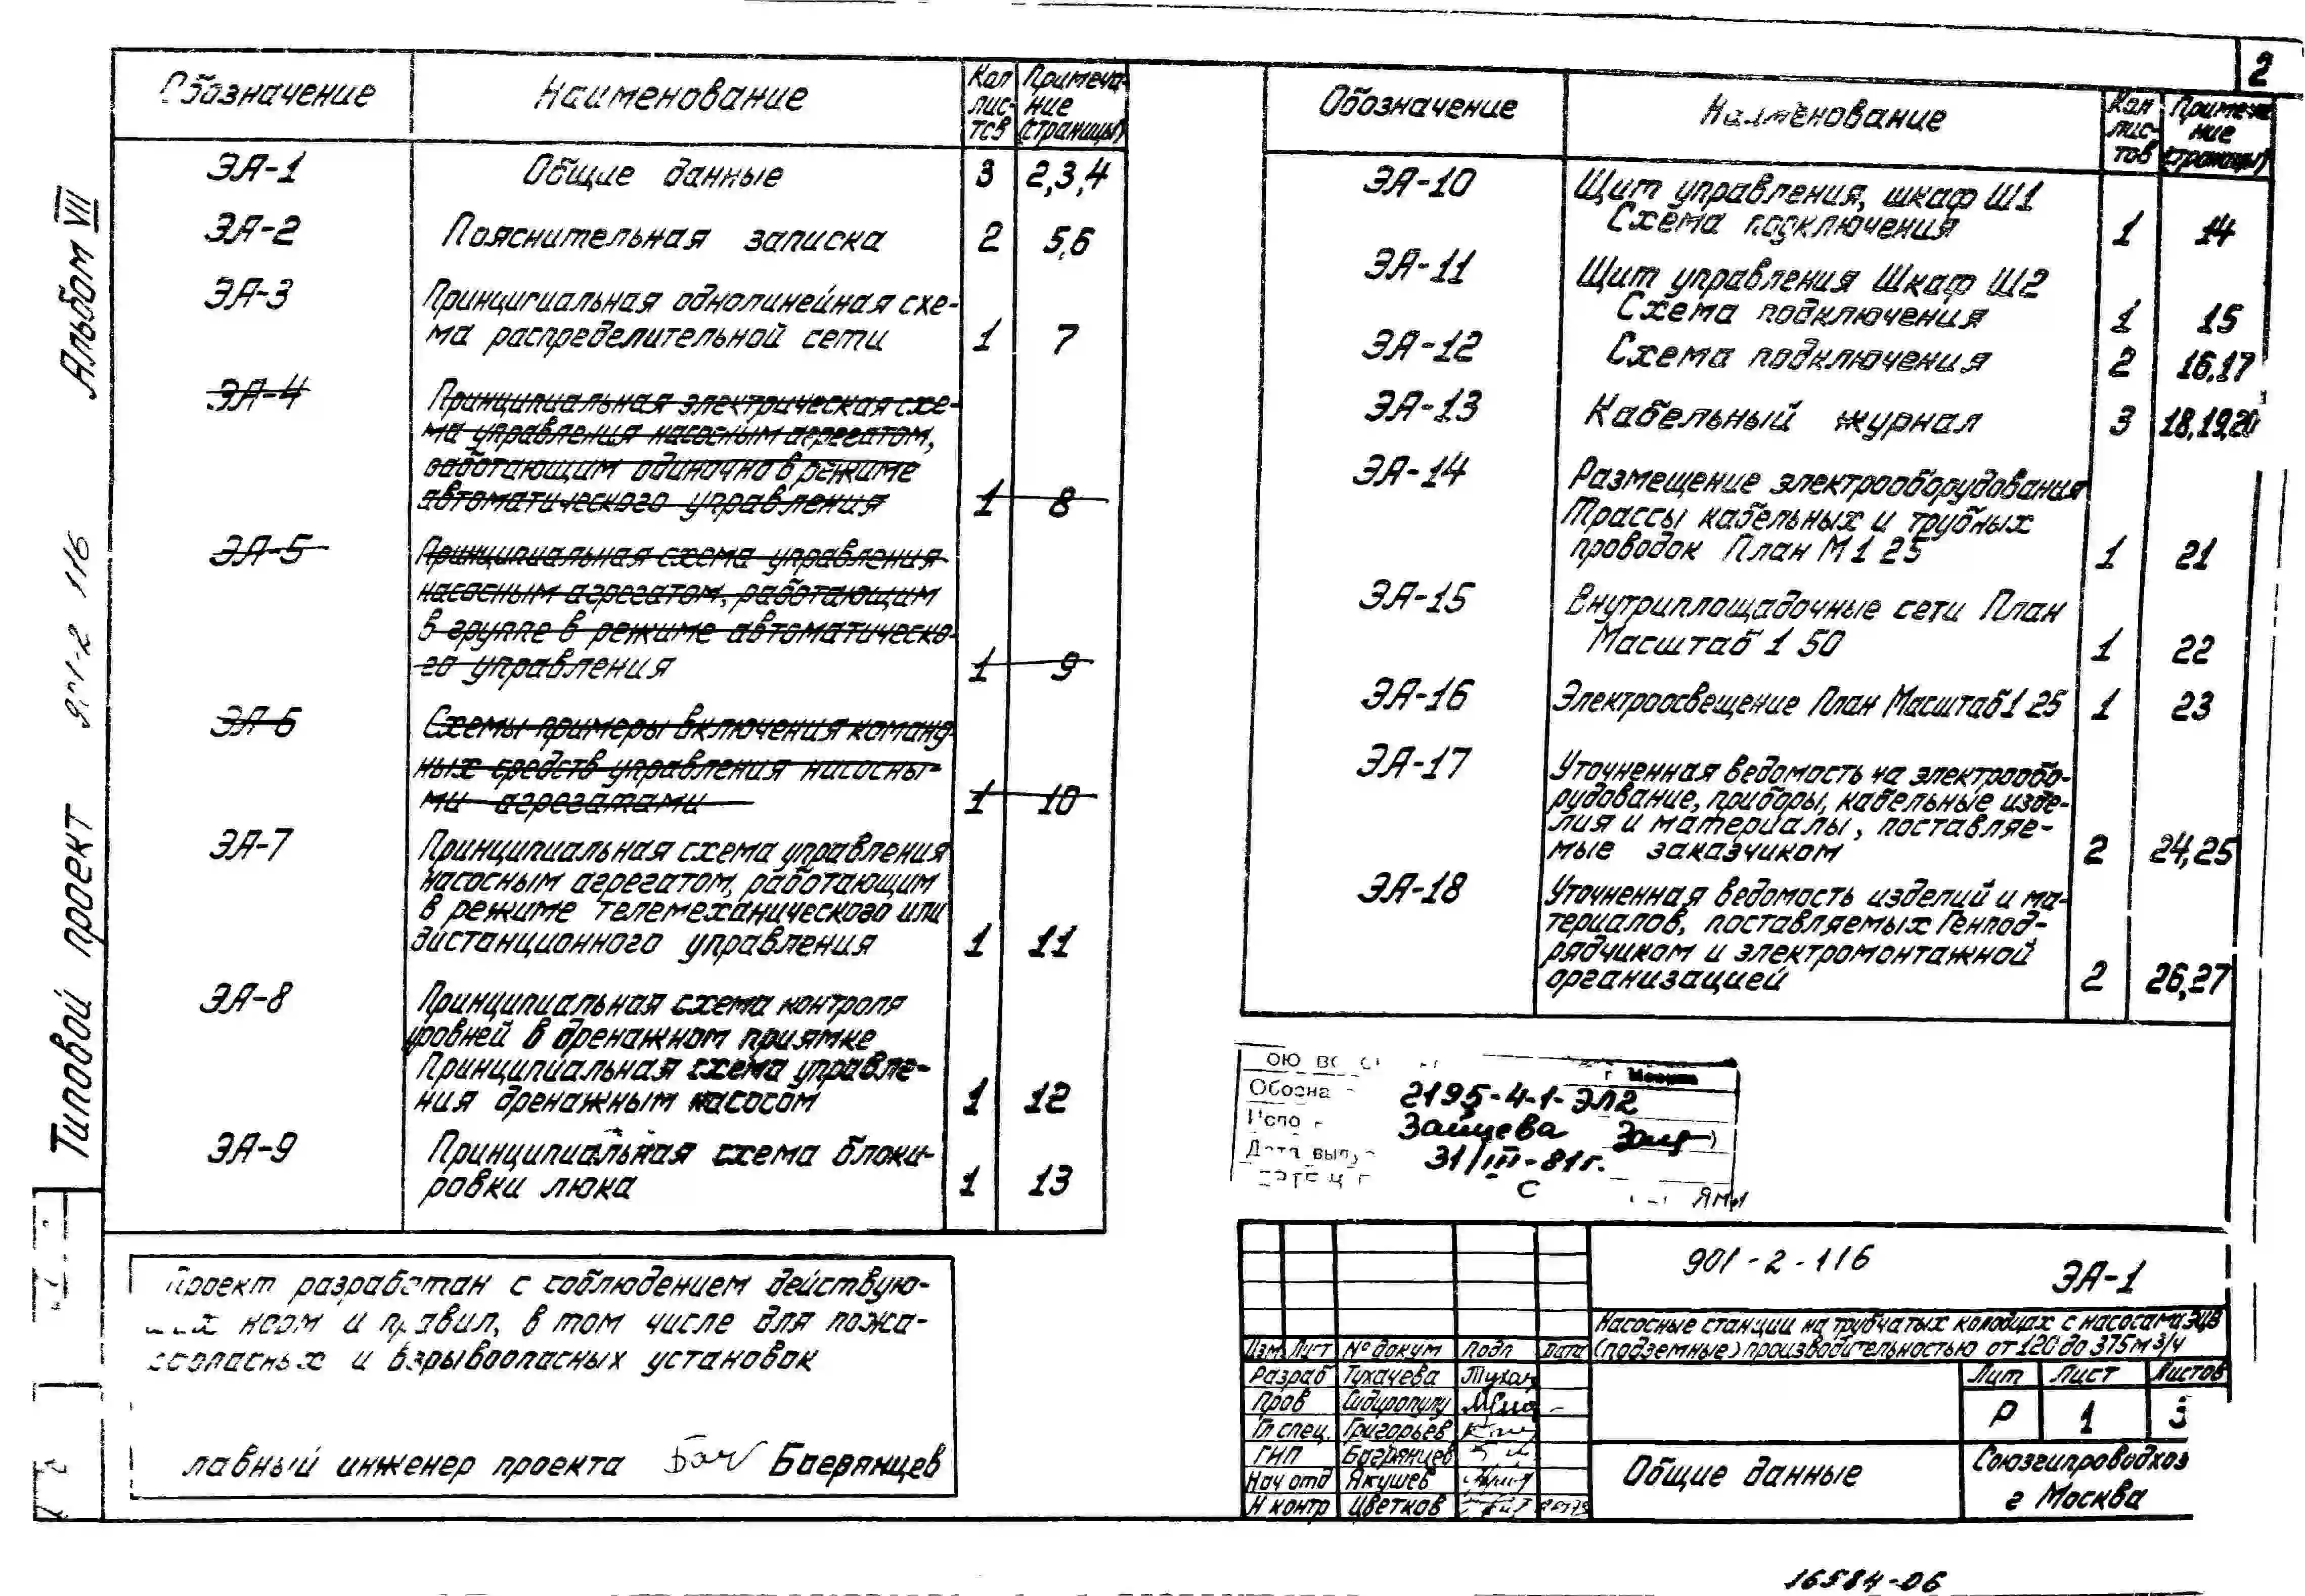 2
Обозначение Наименование Кол лис-тов Примеча-ние (страницы)
ЭА-1 Общие данные 3 2,3,4
ЭА-2 Пояснительная записка 2 5,6
ЭА-3 Принципиальная однолинейная схе-
ма распределительной сети 1 7
ЭА-4 Принципиальная электрическая схе-
ма управления насосным агрегатом,
работающим одиночно в режиме
автоматического управления 1 8
ЭА-5 Принципиальная схема управления
насосным агрегатом, работающим
в группе в режиме автоматическо-
го управления 1 9
ЭА-6 Схемы примеры включения команд-
ных средств управления насосны-
ми агрегатами 1 10
ЭА-7 Принципиальная схема управления
насосным агрегатом, работающим
в режиме телемеханического или
дистанционного управления 1 11
ЭА-8 Принципиальная схема контроля
уровней в дренажном приямке
Принципиальная схема управле-
ния дренажным насосом 1 12
ЭА-9 Принципиальная схема блоки-
ровки люка 1 13
Обозначение Наименование Кол лис-тов Примеча-ние (страницы)
ЭА-10 Щит управления, шкаф Ш1
Схема подключения 1 14
ЭА-11 Щит управления Шкаф Ш2
Схема подключения 1 15
ЭА-12 Схема подключения 2 16,17
ЭА-13 Кабельный журнал 3 18,19,20
ЭА-14 Размещение электрооборудования
Трассы кабельных и трубных
проводок План М 1 25 1 21
ЭА-15 Внутриплощадочные сети План
Масштаб 1 50 1 22
ЭА-16 Электроосвещение План Масштаб 1 25 1 23
ЭА-17 Уточненная ведомость на электрообо-
рудование, приборы, кабельные изде-
лия и материалы, поставляе-
мые заказчиком 2 24,25
ЭА-18 Уточненная ведомость изделий и ма-
териалов, поставляемых Генпод-
рядчиком и электромонтажной
организацией 2 26,27
Альбом VII
Типовой проект 901-2 116
Проект разработан с соблюдением действую-
норм и правил, в том числе для пожа-
и взрывоопасных установок
главный инженер проекта Багрянцев
Обозна 2195-4-1-ЭЛ2
Испо Зайцева
Дата выпу 31/III-81г.
901-2-116 ЭА-1
Насосные станции на трубчатых колодцах с насосами ЭЦВ
(подземные) производительностью от 120 до 375 м3/ч
Изм. Лист № докум Подп Дата
Разраб Тухачева
Пров Сидиропулу
Гл спец. Григорьев
ГИП Багрянцев
Нач отд Якушев
Н контр Цветков
Лит Лист Листов
Р 1 3
Общие данные
Союзгипроводхоз
г Москва
16584-06